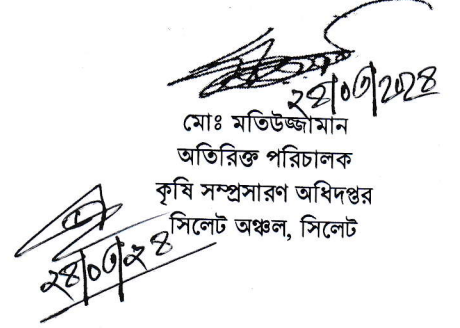 ২৪|০৩|2028
মোঃ মতিউজ্জামান
অতিরিক্ত পরিচালক
কৃষি সম্প্রসারণ অধিদপ্তর
সিলেট অঞ্চল, সিলেট
২৪|০৩|২৪